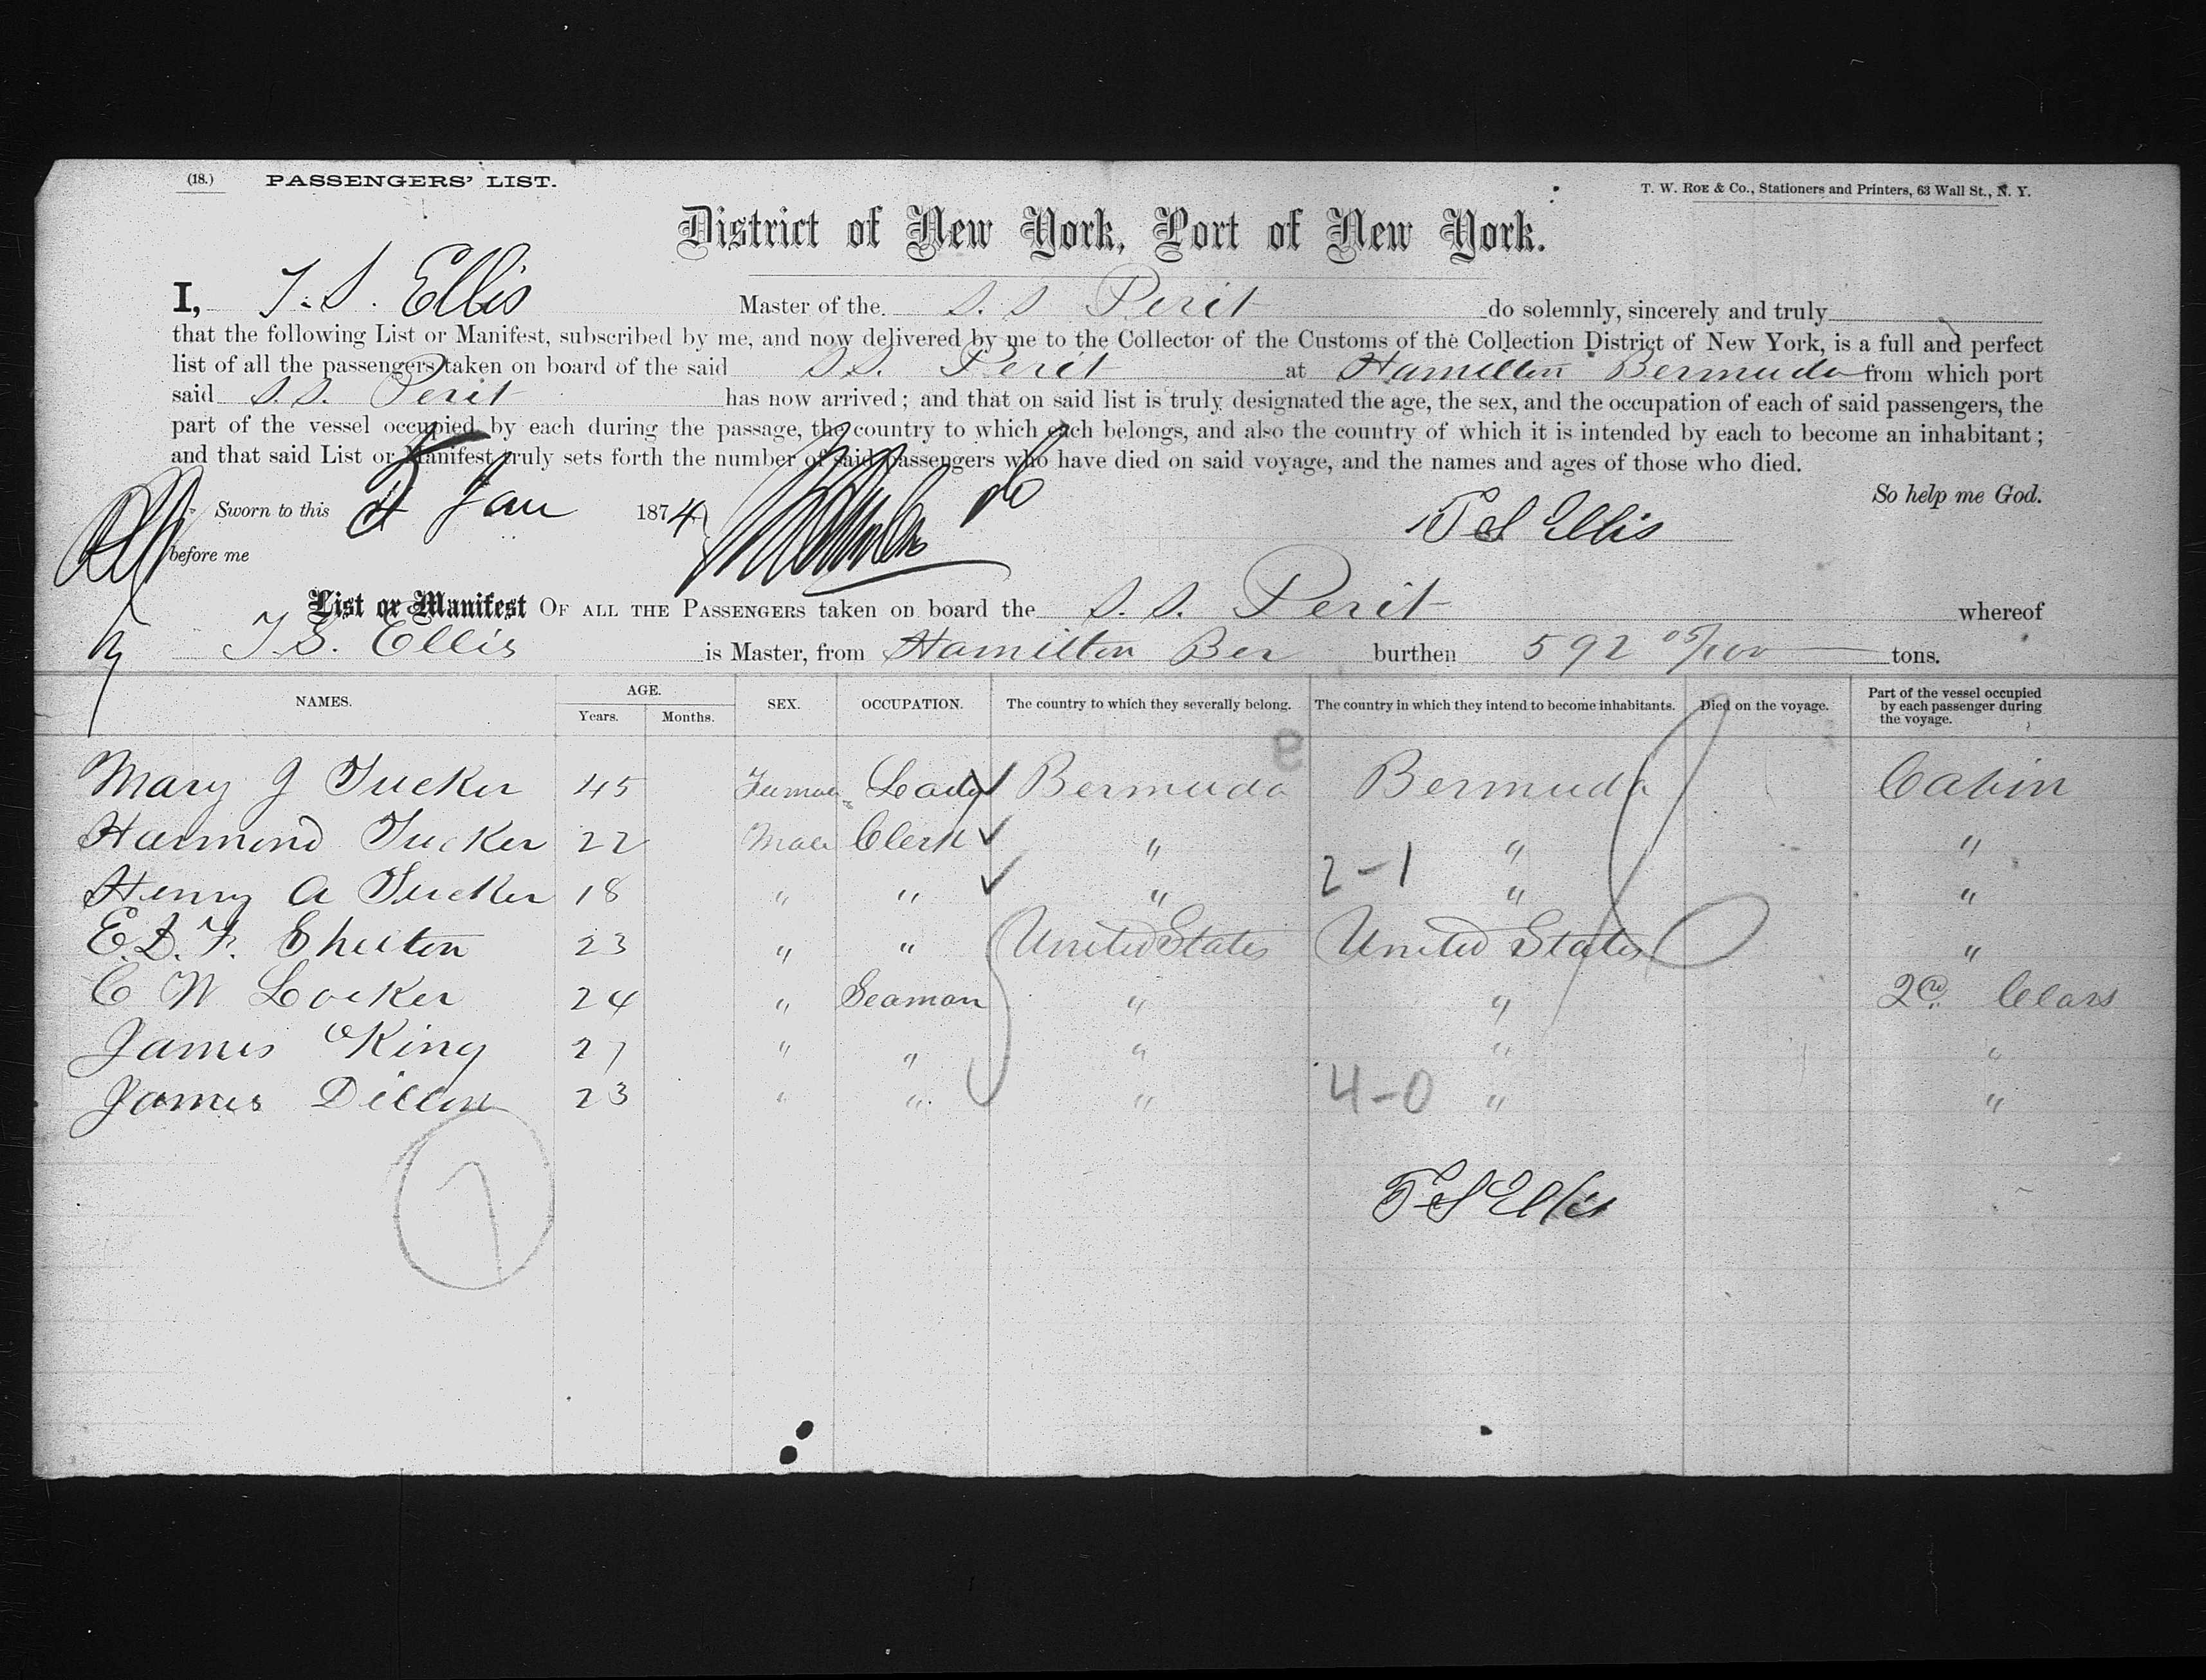 (18.) PASSENGERS' LIST.
T. W. ROE & Co., Stationers and Printers, 63 Wall St., N. Y.
District of New York, Port of New York.
I, T. S. Ellis Master of the S. S Perit do solemnly, sincerely and truly
that the following List or Manifest, subscribed by me, and now delivered by me to the Collector of the Customs of the Collection District of New York, is a full and perfect
list of all the passengers taken on board of the said S S. Perit at Hamilton Bermuda from which port
said S. S. Perit has now arrived; and that on said list is truly designated the age, the sex, and the occupation of each of said passengers, the
part of the vessel occupied by each during the passage, the country to which each belongs, and also the country of which it is intended by each to become an inhabitant;
and that said List or Manifest truly sets forth the number of said passengers who have died on said voyage, and the names and ages of those who died.
So help me God.
Sworn to this 5 Jan 1874
T S Ellis
before me
List or Manifest OF ALL THE PASSENGERS taken on board the S. S. Perit whereof
T. S. Ellis is Master, from Hamilton Ber burthen 592 05/100 tons.
NAMES. AGE. Years. Months. SEX. OCCUPATION. The country to which they severally belong. The country in which they intend to become inhabitants. Died on the voyage. Part of the vessel occupied by each passenger during the voyage.
Mary J Tucker 45 Lady Bermuda Bermuda Cabin
Harmond Tucker 22 Male Clerk " " "
2-1
Henry A Tucker 18 " " " " "
E. D. F. Shelton 23 " " United States United States "
C W Locker 24 " Seaman " " 2nd Class
James King 27 " " " " "
James Dillon 23 " " " " "
4-0
7
T S Ellis